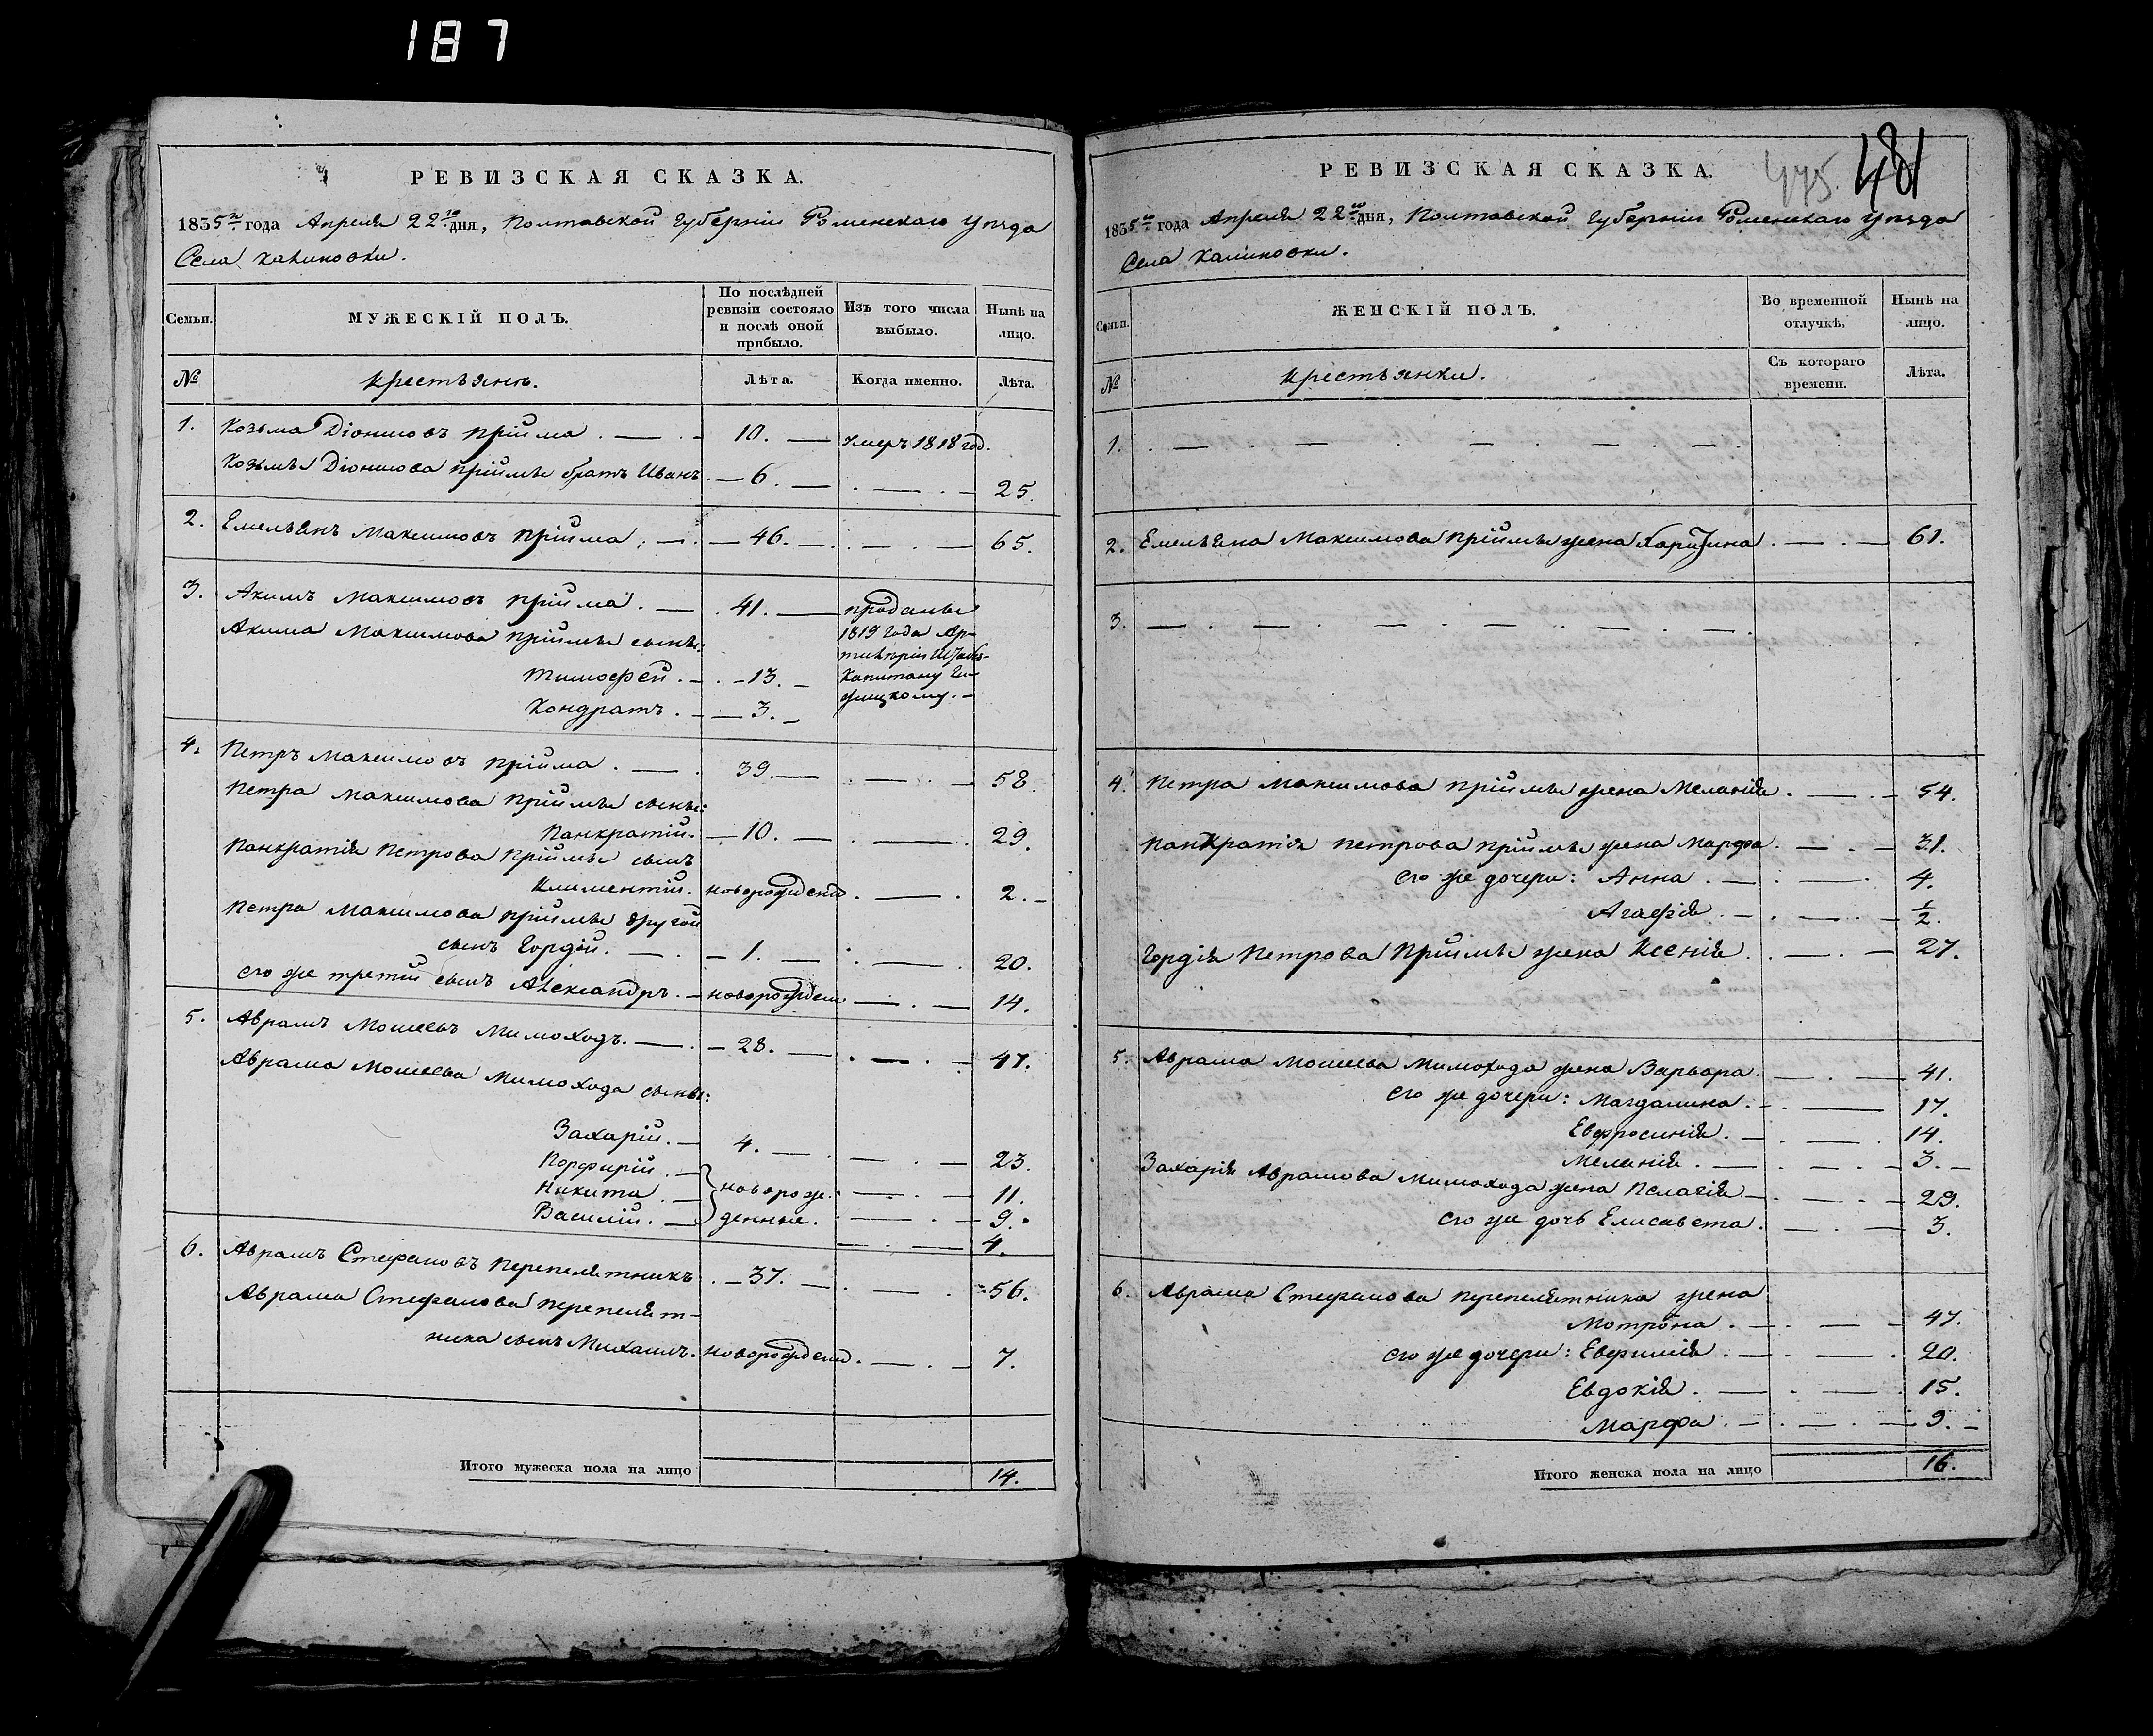 187
РЕВИЗСКАЯ СКАЗКА.
1835го года Апреля 22го дня, Полтавской Губерніи Роменскаго Уѣзда
Села Калиновки.
Семьи.
МУЖЕСКІЙ ПОЛЪ.
По послѣдней
ревизіи состояло
и послѣ оной
прибыло.
Изъ того числа
выбыло.
Нынѣ на
лицо.
№
Крестьянъ.
Лѣта.
Когда именно.
Лѣта.
1. Козьма Діонисовъ Прійма . — . — 10. — умеръ 1818 год.
Козьмы Діонисова Пріймы братъ Иванъ. — 6. — . — . — 25.
2. Емельянъ Максимовъ Прійма . — . — 46. — . — . — 65.
3. Акимъ Максимовъ Прійма . — . 41. — проданы
Акима Максимова Пріймы сыны: 1819 года Ар-
тилеріи Штабсъ-
Тимофей . — . — 13. — Капитану
Кондратъ . — — 3. —
4. Петръ Максимовъ Прійма . — . 39. — . — . — 58.
Петра Максимова Пріймы сыны:
Панкратій. — 10. — . — . 29.
Панкратія Петрова Пріймы сынъ
Климентій. новорожденъ . — . 2. —
Петра Максимова Пріймы другой
сынъ Гордѣй. — . — 1. — . — . 20.
его же третій сынъ Александръ. — новорожден — . — 14.
5. Аврамъ Моисеевъ Мимоходъ. — . — 28. — . — . — 47.
Аврама Моисеева Мимохода сыны:
Захарій. — 4. — . — . — 23.
Порфирій. — новорож- . — . — 11.
Никита . — денные. . — . — 9.
Василій. — — . — 4.
6. Аврамъ Стефановъ Перепелятникъ . — 37. — . — . 56.
Аврама Стефанова Перепелят-
ника сынъ Михаилъ. новорожденъ. — . — 7.
Итого мужеска пола на лицо 14.
РЕВИЗСКАЯ СКАЗКА. 475. 481
1835го года Апреля 22го дня, Полтавской Губерніи Роменскаго Уѣзда
Села Калиновки.
Семьи.
ЖЕНСКІЙ ПОЛЪ.
Во временной
отлучкѣ.
Нынѣ на
лицо.
№
Крестьянки.
Съ котораго
времени.
Лѣта.
1. . — . — . — . — . — .
2. Емельяна Максимова Пріймы жена Харитина . — . — 61.
3. — . — . — . — . — .
4. Петра Максимова Пріймы жена Меланія . — . — 54.
Панкратія Петрова Пріймы жена Марфа . — . — 31.
его же дочери: Анна . — . — 4.
Агафія . — . — . — 1/2.
Гордія Петрова Пріймы жена Ксенія . . — . — 27.
5. Аврама Моисеева Мимохода жена Варвара. — . — 41.
его же дочери: Магдалина . — . — 17.
Евфросинія . — . — . 14.
Меланія . — . — . — 3. —
Захарія Аврамова Мимохода жена Пелагія — . — . — 29.
его же дочь Елисавета . — . — 3.
6. Аврама Стефанова Перепелятника жена
Мотрона . — . — — 47.
его же дочери: Евфимія . — . — . 20.
Евдокія . — . — . 15.
Марфа . — . — . — 9. —
Итого женска пола на лицо 16.